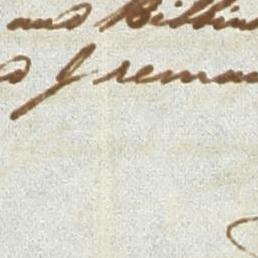 and Billin
I remai